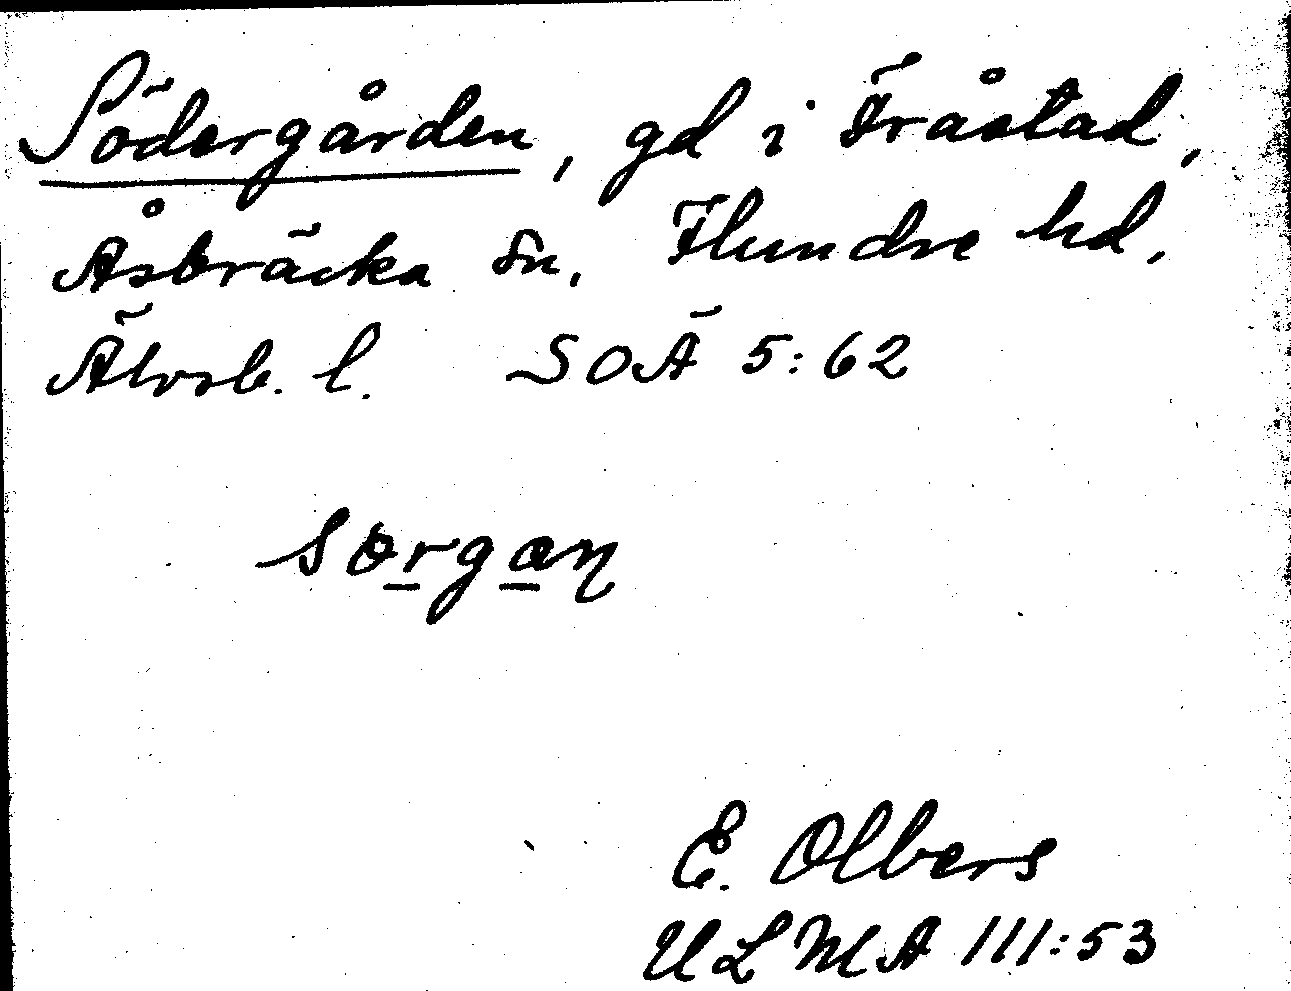 Södergården, gd i Fråstad,
Åsbräcka sn. Flundre hd.
Älvsb. l. SOÄ 5:62
sørgan
E. Olbers
ULMA III:53